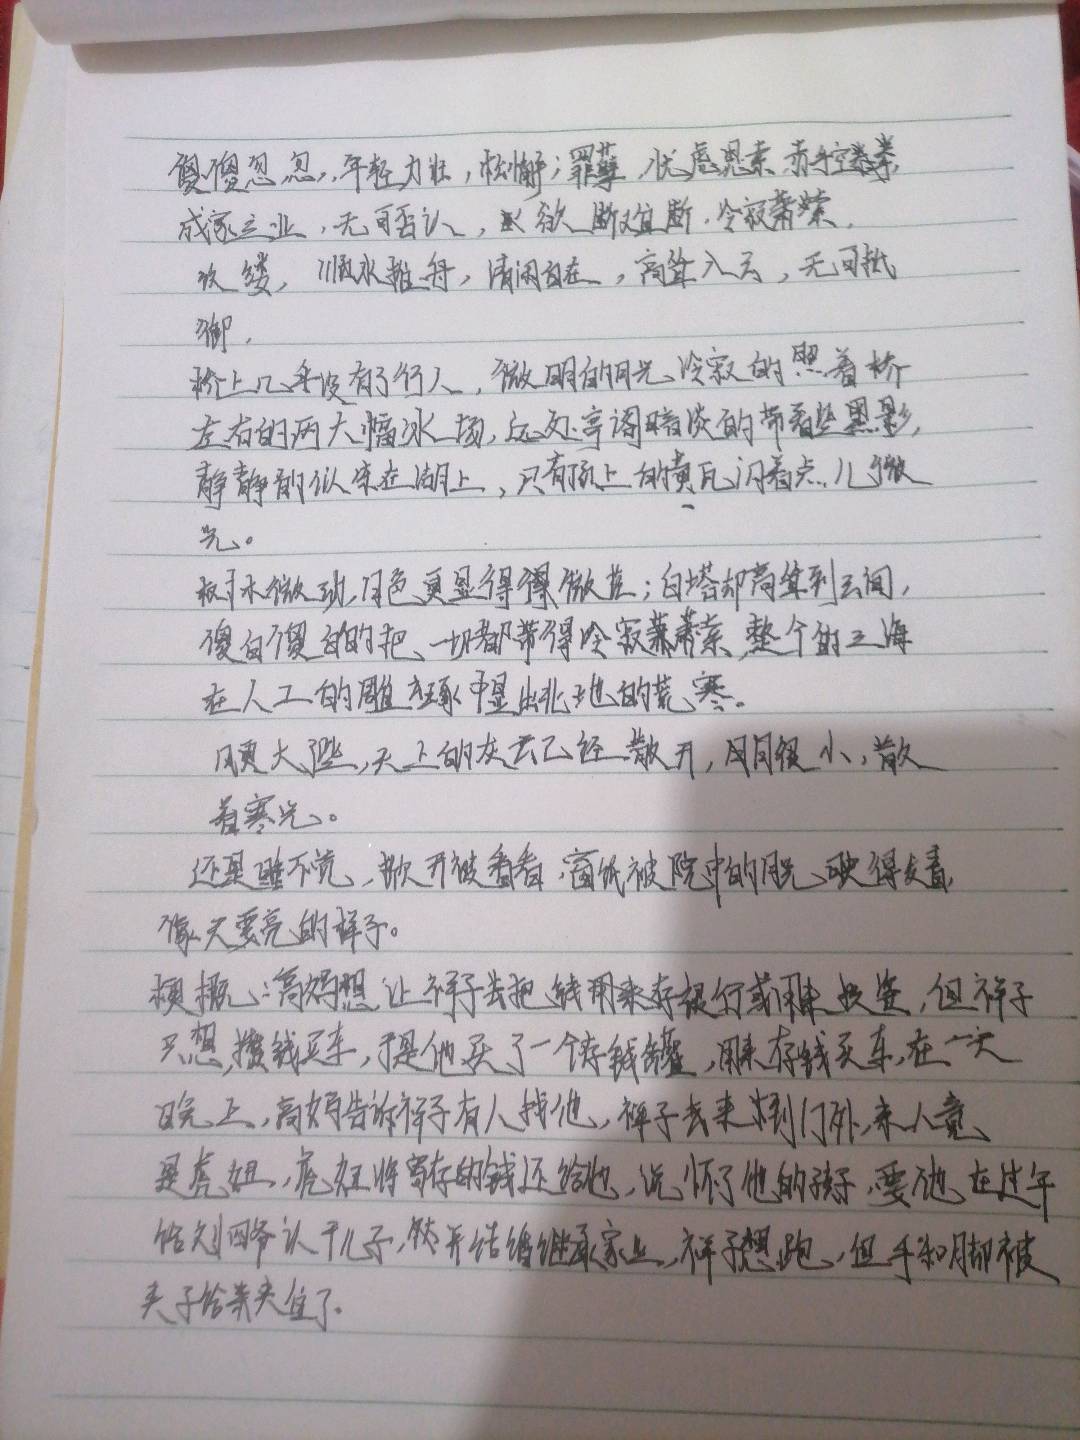 傻傻忽忽，年轻力壮，松懈；罪孽，忧虑思索，赤手空拳拳，
成家立业，无可否认，欲断难断，冷寂萧索，
缕，顺水推舟，清闲自在，高耸入云，无可抵
御，
桥上几乎没有了行人，微明的月光冷寂的照着桥
左右的两大幅冰场，远处亭阁暗淡的带着些黑影，
静静的似冻在湖上，只有顶上的黄瓦闪着点儿微
光。
树木微动，月色更显得得微茫；白塔却高耸到云间，
傻白傻白的把一切都带得冷寂萧萧索，整个的三海
在人工的雕琢中显出北地的荒寒。
风更大了些，天上的灰云已经散开，月月很小，散
着寒光。
还是睡不觉，掀开被看看，窗纸被院中的月光映得发青，
像天要亮的样子。
梗概：高妈想让祥子去把钱用来存银行或用来投资，但祥子
只想攒钱买车，于是他买了一个存钱罐，用来存钱买车，在一天
晚上，高妈告诉祥子有人找他，祥子去来到门外，来人竟
是虎妞，虎妞将寄存的钱还给他，说怀了他的孩子，要他在过年
给刘四爷认干儿子，然并结婚继承家业，祥子想跑，但手和脚都被
夹子给夹住了。